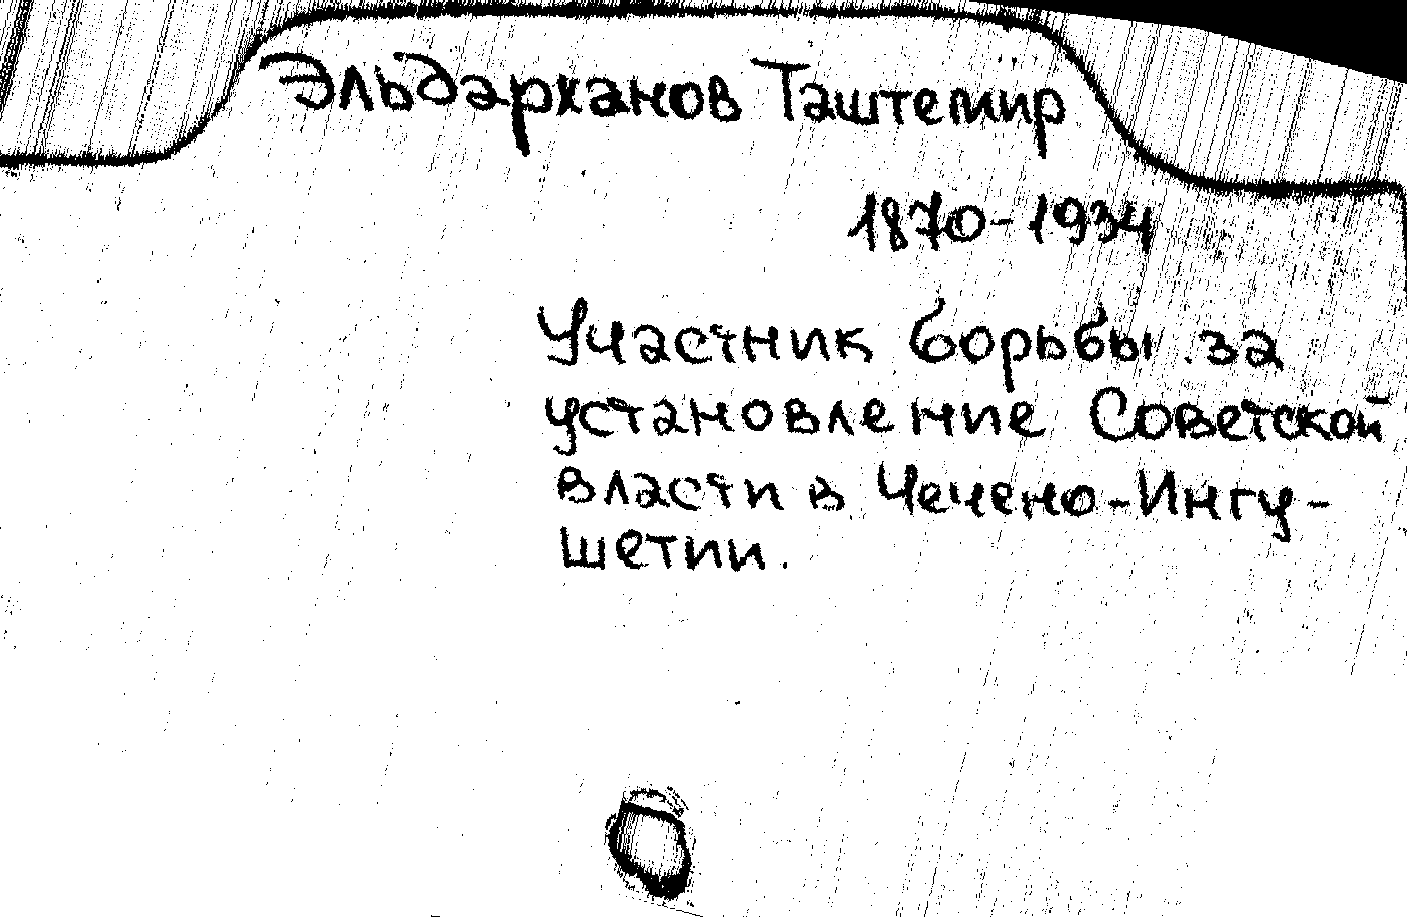 Эльдарханов Таштемир
1870-1934
Участник борьбы за
установление Советской
власти в Чечено-Ингу-
шетии.